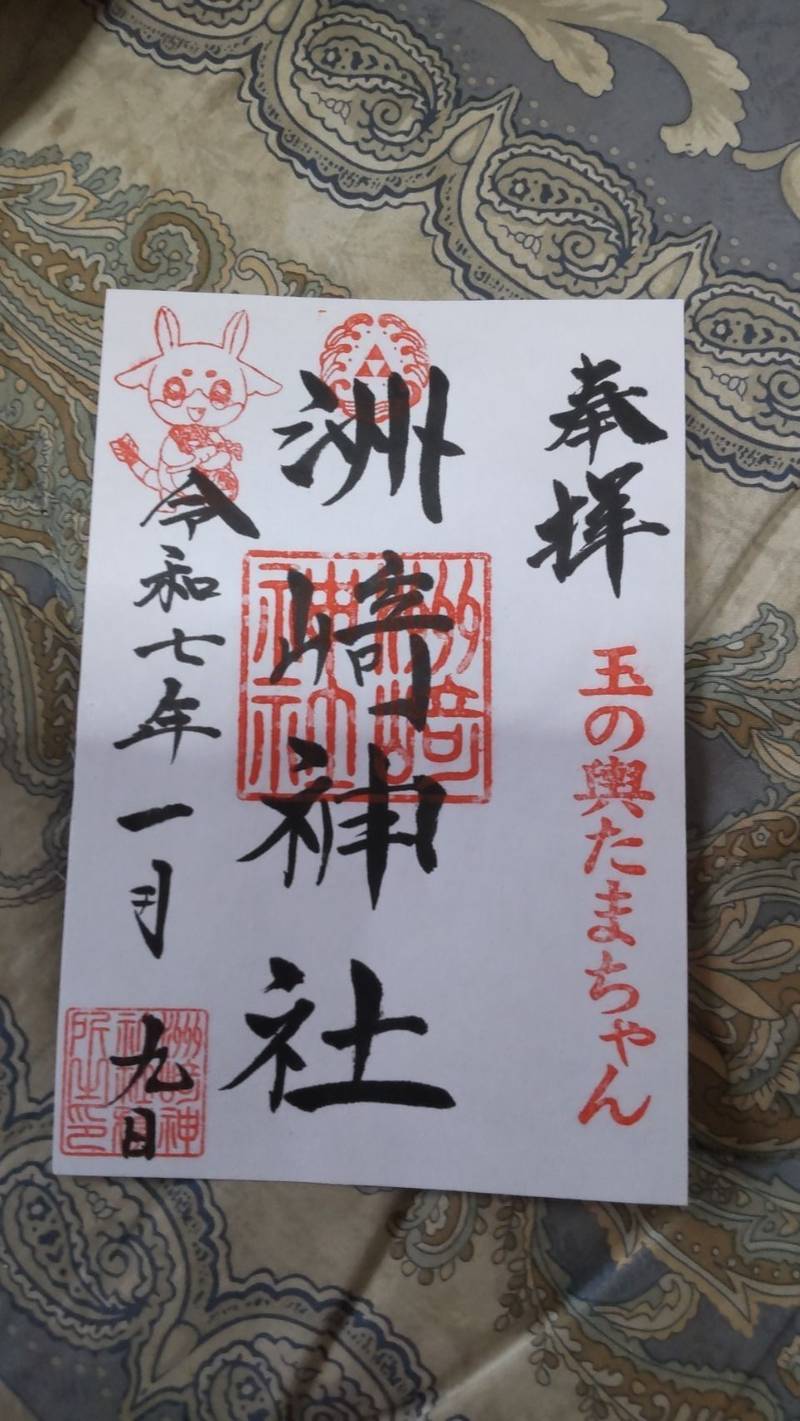 奉拝
玉の輿たまちゃん
洲崎神社
洲崎
神社
令和七年一月九日
洲崎神
社社務
所之印